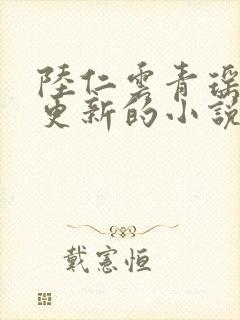 陸仁雲青瑶
更新的小說
戴憲恒